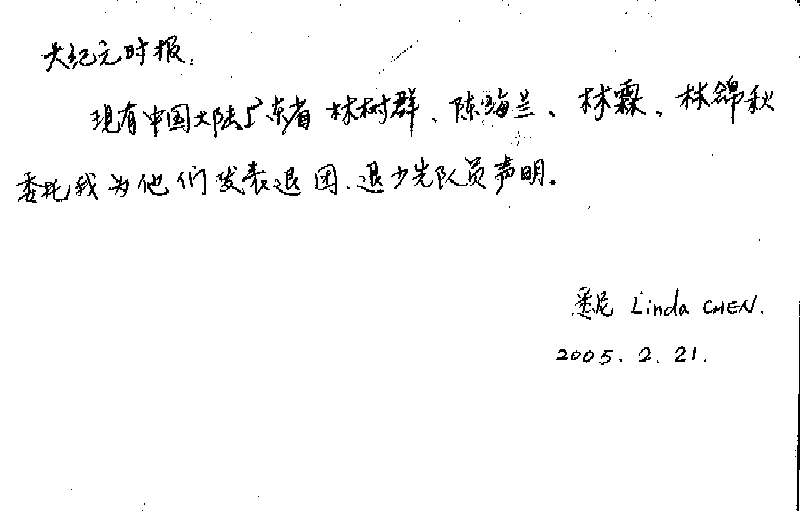 大纪元时报:
现有中国大陆广东省林树群、陈海兰、林霖、林锦秋
委托我为他们发表退团、退少先队员声明。
悉尼 Linda CHEN.
2005. 2. 21.